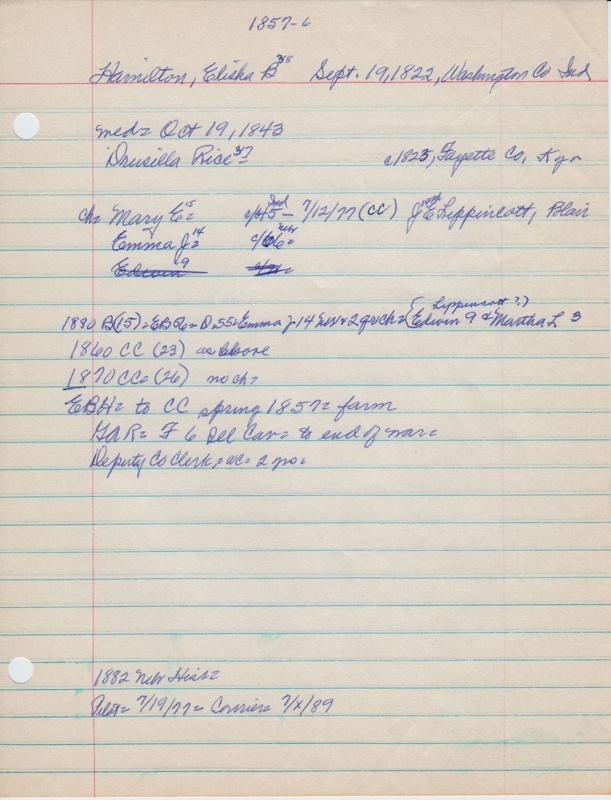 1857-6
Hamilton, Elisha B 38 Sept. 19, 1822, Washington Co Ind
med= Oct 19, 1843
Drusilla Rice 37= c1823, Fayette Co, Ky=
ch= Mary E= 15 c/45 Ind - 7/12/77 (CC) J E Lippincott, Blair
Emma J= 14 c/66= Nebr
Edwin 9
1880 B(15)= EB 56= D 55= Emma J 14 Neb & 2 gr ch= {Edwin 9 & Martha L 3 (Lippencott?)
1860 CC (23) as above
1870 CC= (26) no ch=
EBH= to CC spring 1857= farm
GAR= F 6 Del Cav= to end of war=
Deputy Co Clerk= WC= 2 no=
1882 Neb Hist=
Pilot= 7/19/77= Courier= 7/x/89